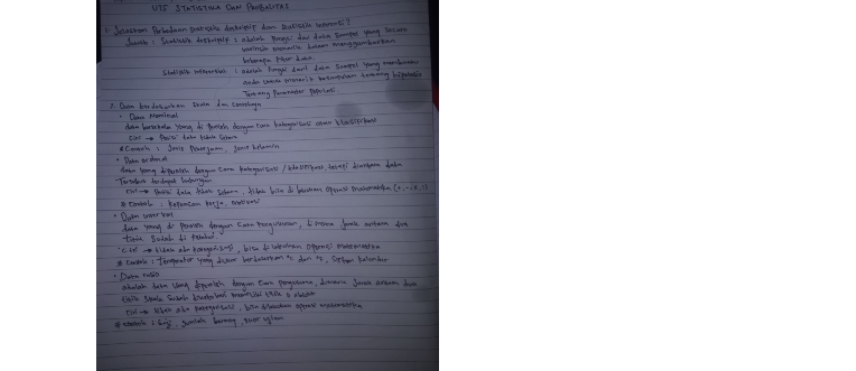 UTS STATISTIKA DAN PROBALITAS
1. Jelaskan Perbedaan statistik deskriptif dan statistik inferensi?
Jawab : Statistik deskriptif : adalah fungsi dari data sampel yang secara
menarik dalam menggambarkan
beberapa fitur data.
Statistik inferensi : adalah fungsi dari data sampel yang membantu
anda untuk menarik kesimpulan tentang hipotesis
Tentang Parameter populasi.
2. Data berdasarkan Skala dan
• Data Nominal
data berskala yang di peroleh dengan cara kategorisasi atau klasifikasi
ciri → Posisi data tidak setara
* Contoh : Jenis Pekerjaan, Jenis kelamin
• Data ordinal
data yang diperoleh dengan cara kategorisasi / klasifikasi, tetapi diantara data
Tersebut terdapat hubungan
ciri → Posisi data tidak setara, tidak bisa di lakukan operasi matematika (+, -, x, :)
* Contoh : kepuasan kerja, motivasi
• Data interval
data yang di peroleh dengan cara Pengukuran, dimana Jarak antara dua
titik Sudah di
Ciri → tidak ada kategorisasi, bisa di lakukan operasi matematika
* Contoh : Temperatur yang diukur berdasarkan °C dan °F, Sistem kalender
• Data rasio
adalah data yang diperoleh dengan cara pengukuran, dimana Jarak antara dua
titik skala sudah diketahui memiliki titik 0 absolut
ciri → tidak ada kategorisasi, bisa dilakukan operasi matematika
* contoh : gaji, jumlah barang, skor ujian